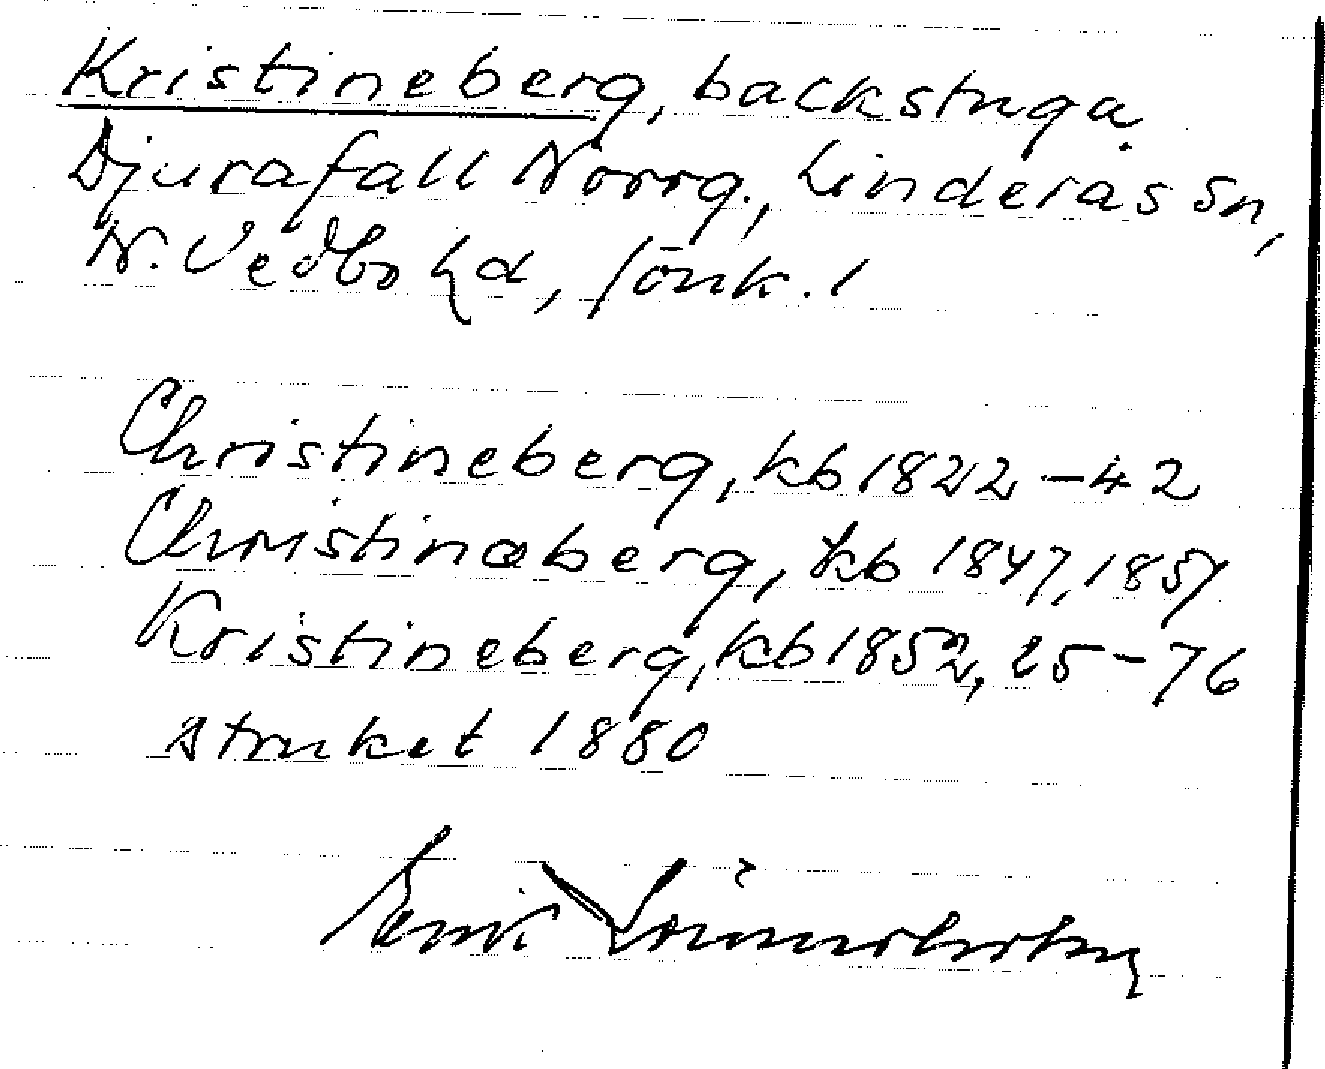 Kristineberg, backstuga
Djurafall Norrg., Linderås sn,
N. Vedbo hd, Jönk. l
Christineberg, kb 1822-42
Christinæberg, kb 1847, 1851
Kristineberg, kb 1852, 25-76
struket 1880